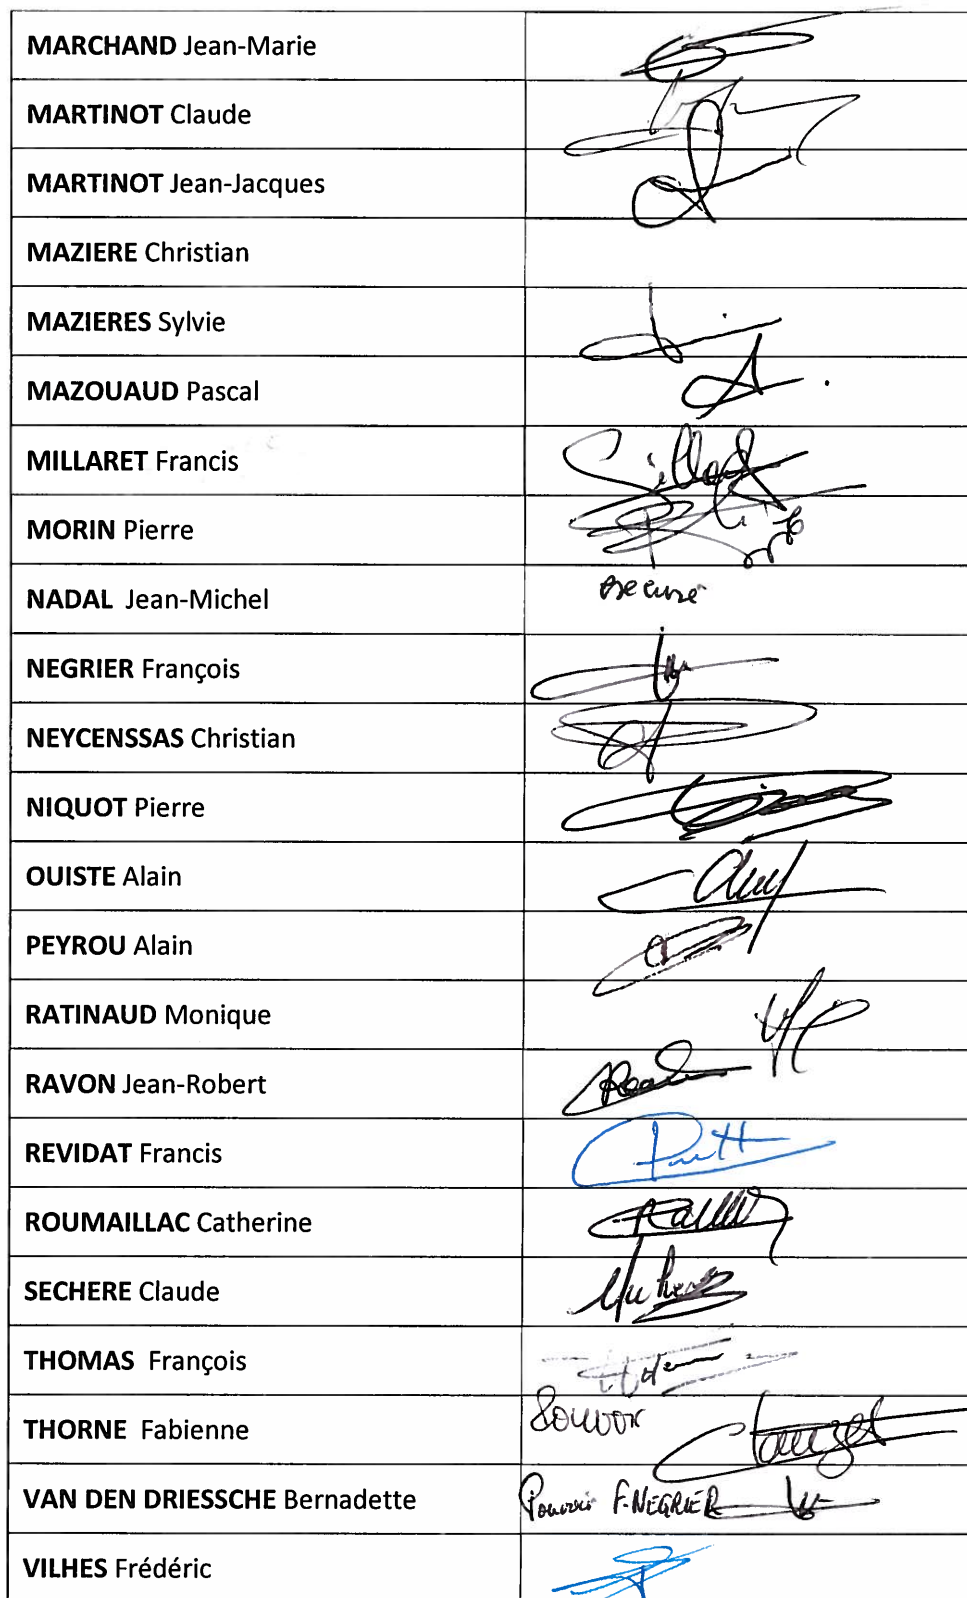 MARCHAND Jean-Marie
MARTINOT Claude
MARTINOT Jean-Jacques
MAZIERE Christian
MAZIERES Sylvie
MAZOUAUD Pascal
MILLARET Francis
MORIN Pierre
NADAL Jean-Michel
NEGRIER François
NEYCENSSAS Christian
NIQUOT Pierre
OUISTE Alain
PEYROU Alain
RATINAUD Monique
RAVON Jean-Robert
REVIDAT Francis
ROUMAILLAC Catherine
SECHERE Claude
THOMAS François
THORNE Fabienne
VAN DEN DRIESSCHE Bernadette Pouvoir F. NEGRIER
VILHES Frédéric